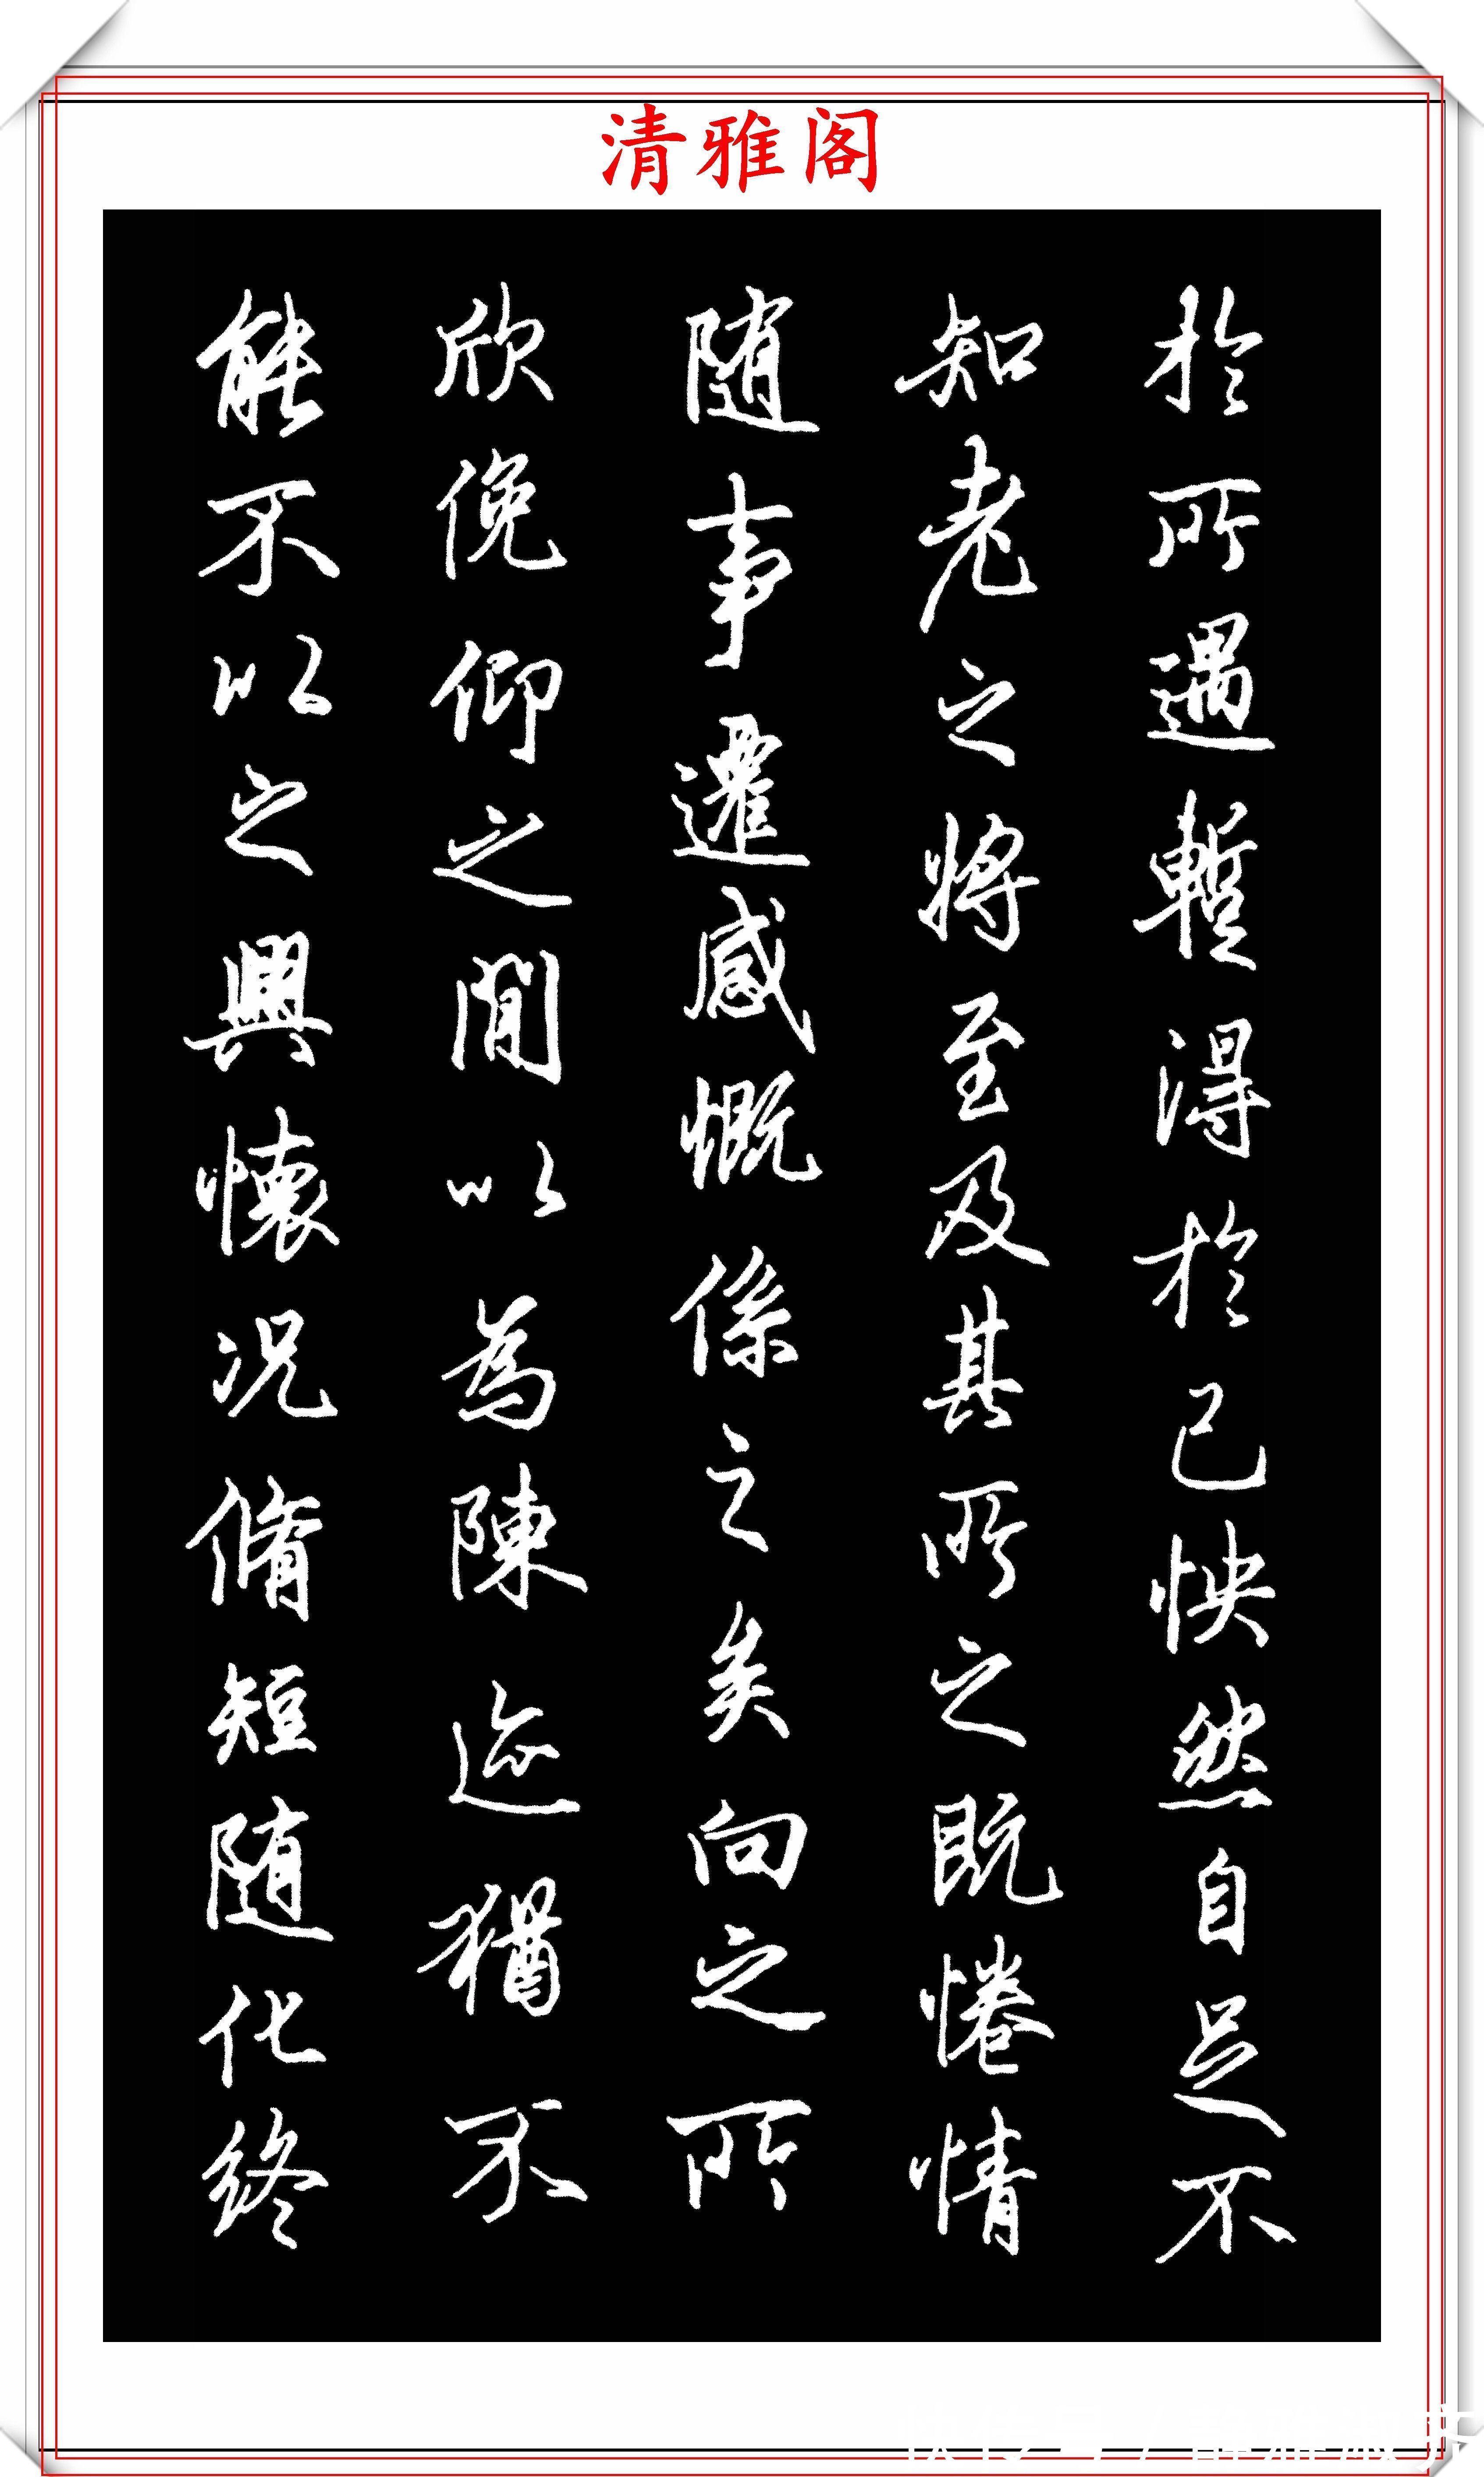 清雅阁
於所遇暫得於己怏然自足不
知老之將至及其所之既惓情
随事遷感慨係之矣向之所
欣俛仰之閒以為陳迹猶不
能不以之興懷况脩短随化終